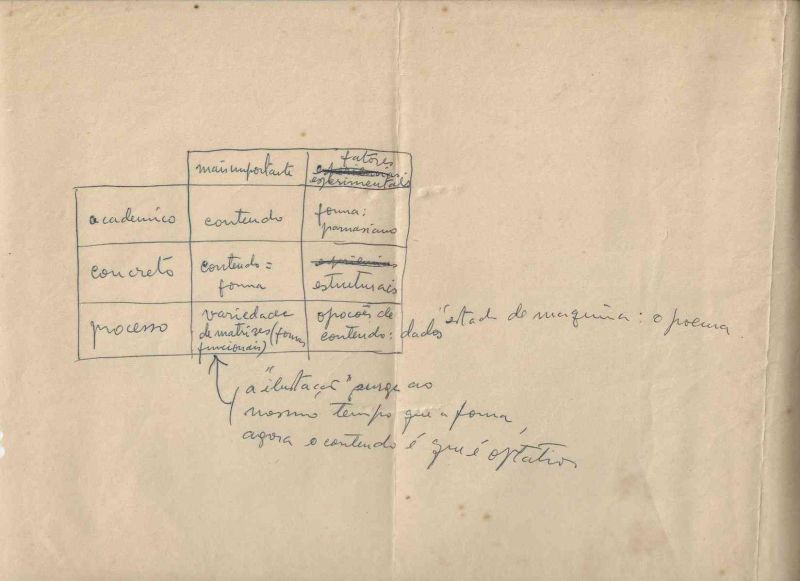 mais importante
fatores
experimentais
academico
contendo
forma:
parnasiano
concreto
contendo =
forma
estruturais
processo
variedade
de matrizes (formas
funcionais)
opções de
contendo: dados
"estado de maquina: o poema
a "ilustação" surge ao
mesmo tempo que a forma,
agora o contendo é que é optativo